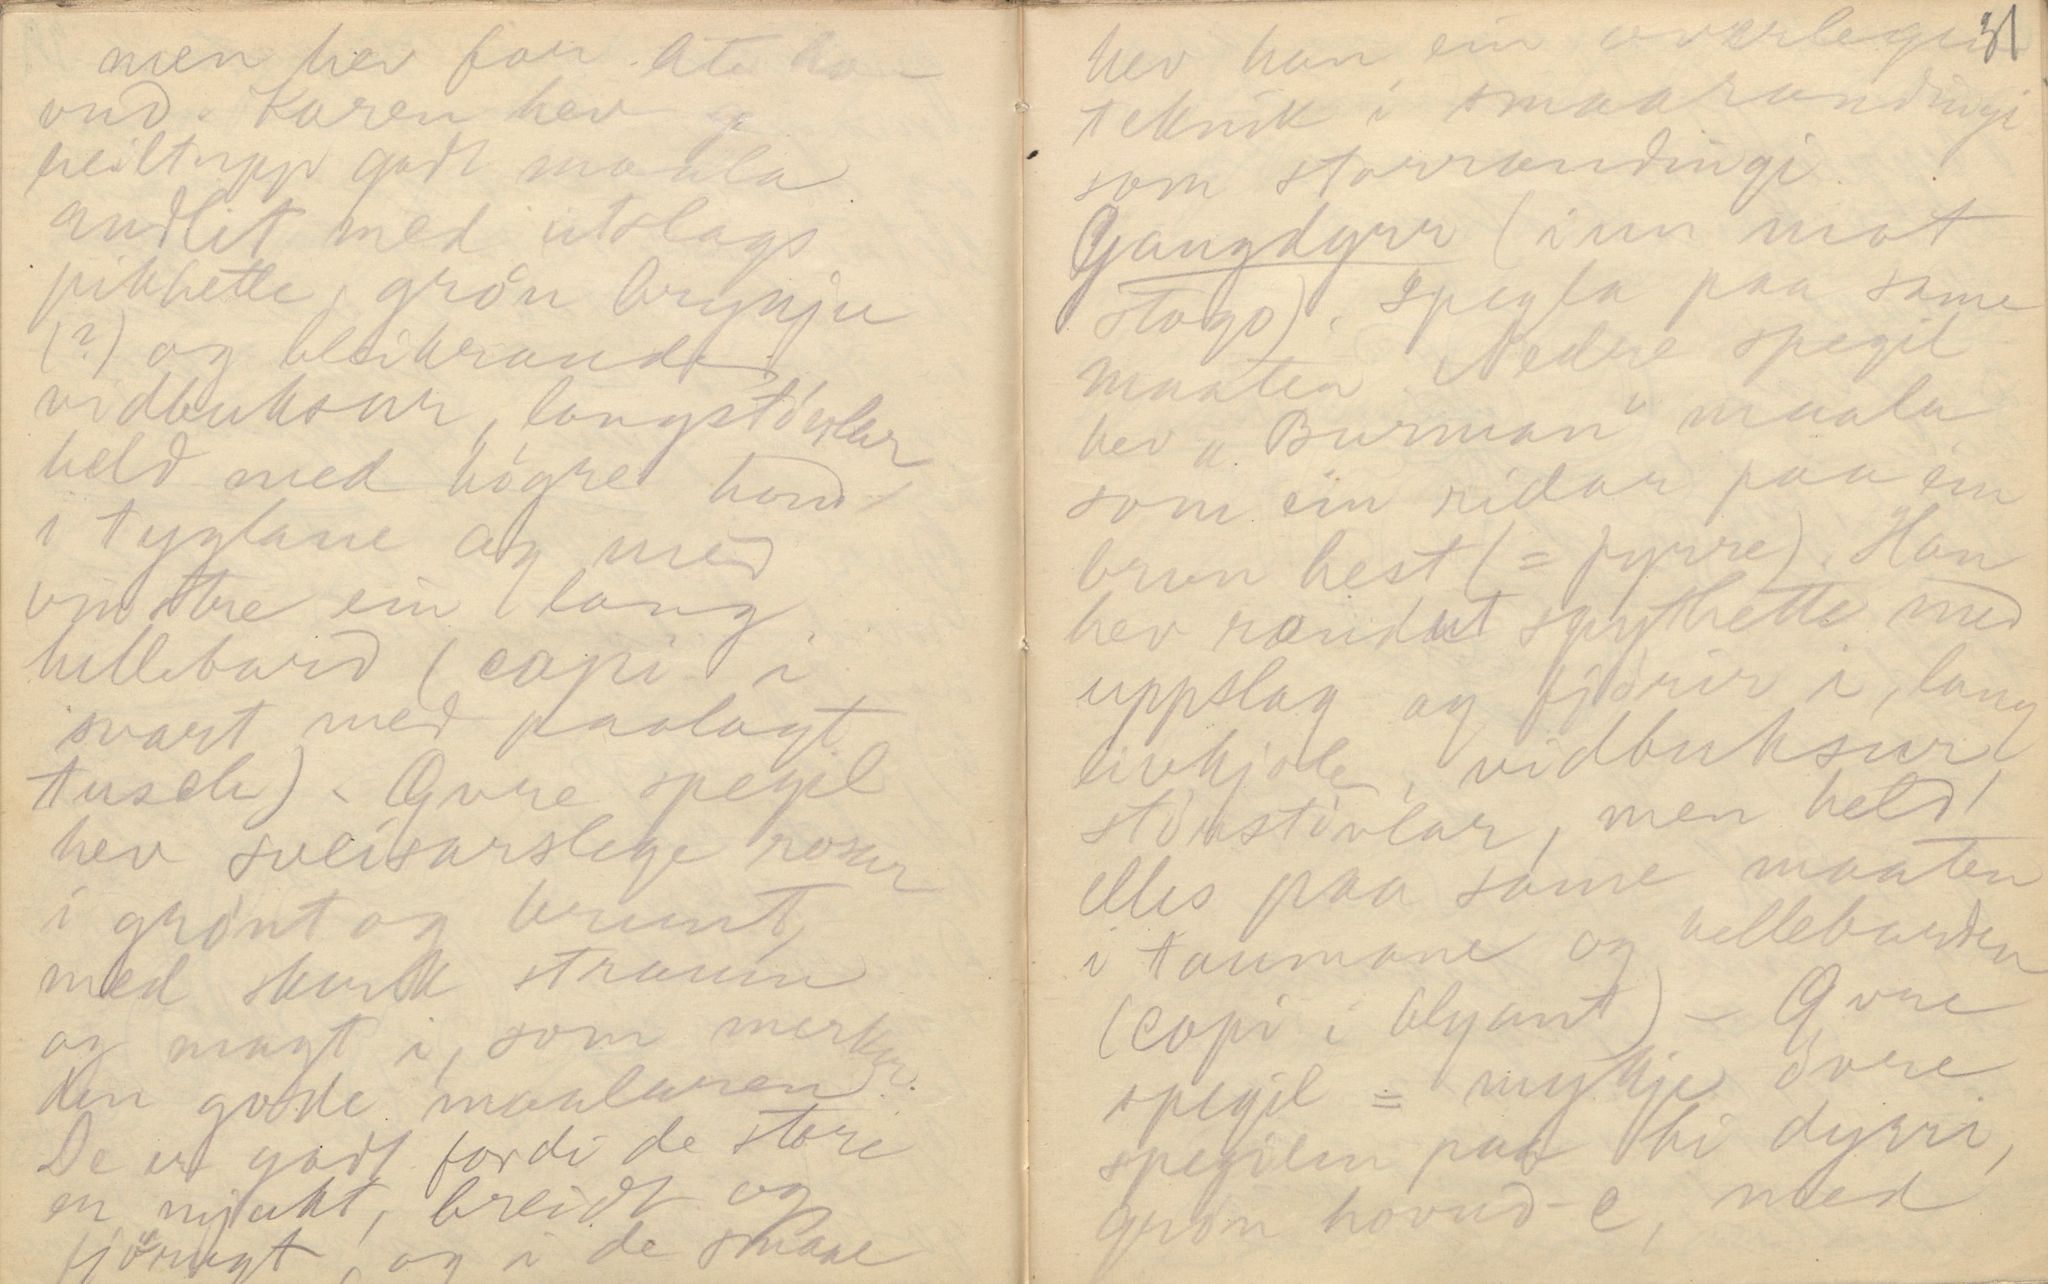 men hev for lite ho-
vud. Karen hev
heiltupp godt maala
andlit med utslags
pikhette, grøn brynju
(?) og bleikraude
vidbuksur, langstövlar,
held med högre hond
i tyglane og med
vinstre ein lang
hellebard (copi i
svart med paalagt
tusch). Øvre spegil
hev sveisarslege rosur
i grönt og brunt,
med skurk straum
og magt i, som merkar
den gode maalaren.
De er godt fordi de store
er mjukt, breidt og
fjörugt, og i de smaae
31
hev han ein overlegen
teknik i smaarandingi
som storrandingi.
Gangdyrr (inn mot
stogo). Spegla paa same
maaten. Nedre spegil
hev "Burman" maala
som ein ridar paa ein
brun hest (= fyrre). Han
hev rundut spythette med
uppslag og fjörir i, lang
livkjole, vidbuksur,
storstövlar, men held
elles paa same maaten
i taumane og hellebarden
(copi i blyant) - Øvre
spegil = mykje övre
spegilen paa hi dyrri,
grön hovud-C, med